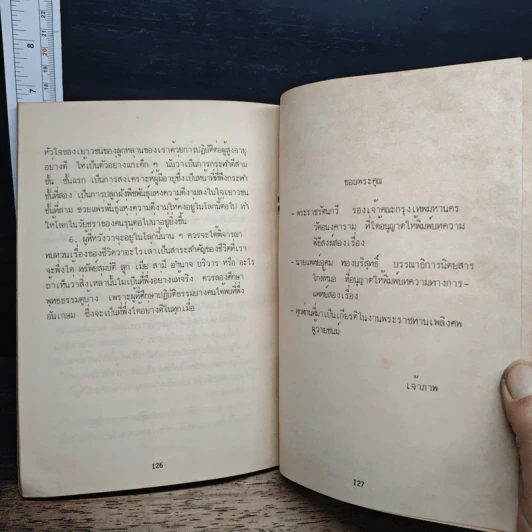 หัวใจของเยาวชนของลูกหลานของเราด้วยการปฏิบัติต่อผู้สูงอายุ
อย่างดี ให้เป็นตัวอย่างแก่เด็ก ๆ นับว่าเป็นการกระทำดีสาม
ชั้น ชั้นแรก เป็นการสงเคราะห์ผู้มีอายุซึ่งเป็นหน้าที่พึงกระทำ
ชั้นที่สอง เป็นการปลูกฝังพืชพันธุ์แห่งความดีงามลงในใจเยาวชน
ชั้นที่สาม ช่วยแพร่พันธุ์แห่งความดีงามให้คงอยู่ในโลกนี้ต่อไป ทำ
ให้โลกในวัยชราของคนรุ่นต่อไปน่าอยู่ยิ่งขึ้น
6. ผู้ที่หวังว่าจะอยู่ในโลกนี้นาน ๆ ควรจะได้พิจารณา
ทบทวนเรื่องของชีวิตว่าอะไร เล่าเป็นสาระสำคัญของชีวิตที่เรา
จะพึ่งได้ ทรัพย์สมบัติ ลูก เมีย สามี อำนาจ บริวาร หรือ อะไร
ถ้าเห็นว่าสิ่งเหล่านั้นไม่เป็นที่พึ่งอย่างแท้จริง ควรลองศึกษา
พุทธธรรมดูบ้าง เพราะผู้ที่ศึกษาปฏิบัติธรรมบางคนได้พบที่พึ่ง
อันเกษม ซึ่งจะเป็นที่พึ่งได้อย่างดีในทุกเมื่อ
126
ขอบพระคุณ
- พระราชรัตนกวี รองเจ้าคณะกรุงเทพมหานคร
วัดอนงคาราม ที่ได้อนุญาตให้พิมพ์บทความ
พิธีสงฆ์สองเรื่อง
- นายแพทย์อุดม ทองบริสุทธิ์ บรรณาธิการนิตยสาร
ใกล้หมอ ที่อนุญาตให้พิมพ์บทความทางการ-
แพทย์สองเรื่อง
- ทุกท่านที่มาเป็นเกียรติในงานพระราชทานเพลิงศพ
ผู้วายชนม์
เจ้าภาพ
127
8
7